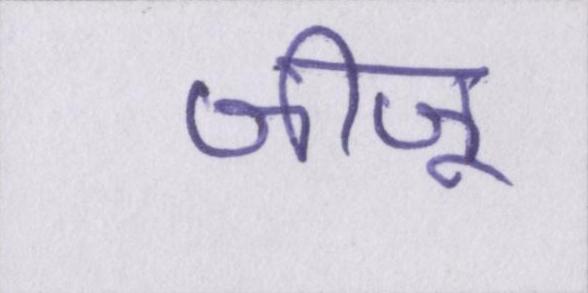 जीजू